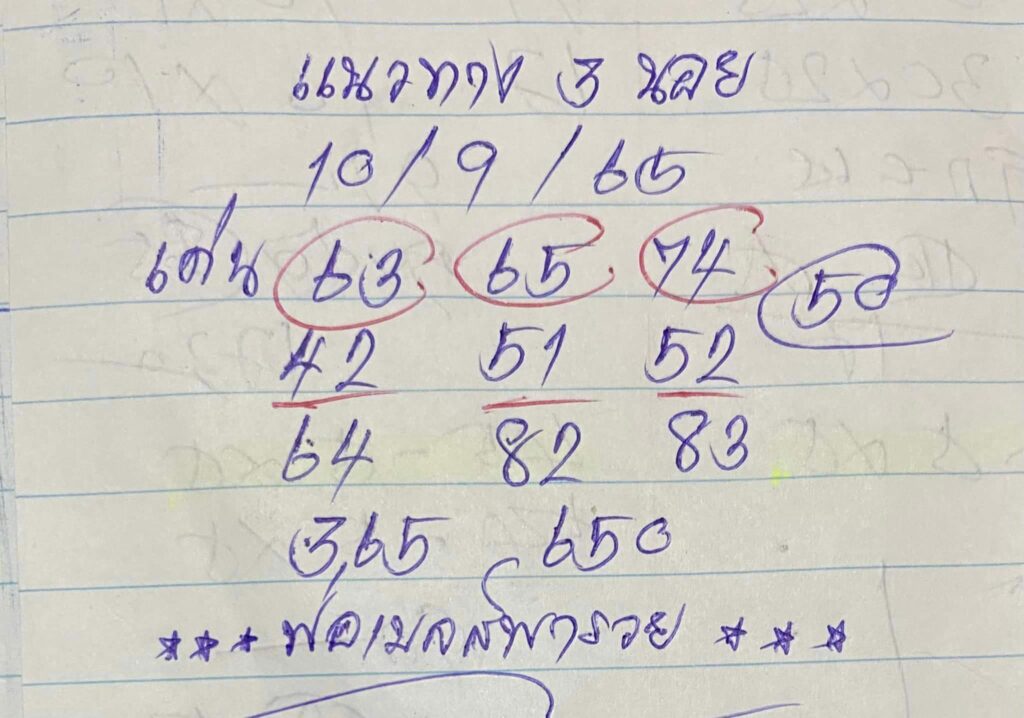 แนวทาง 3 นอย
10/9/65
เด่น 63 65 74 50
42 51 52
64 82 83
3,65 650
*** พ่อเมลล์พารวย ***